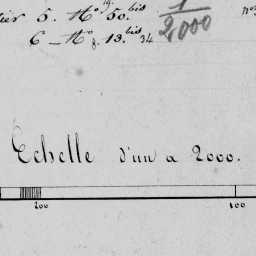 ier 5. N.º 50.bis 1/2000 no
6 – N.º 13.bis 34
Echelle d'un a 2000.
200 100